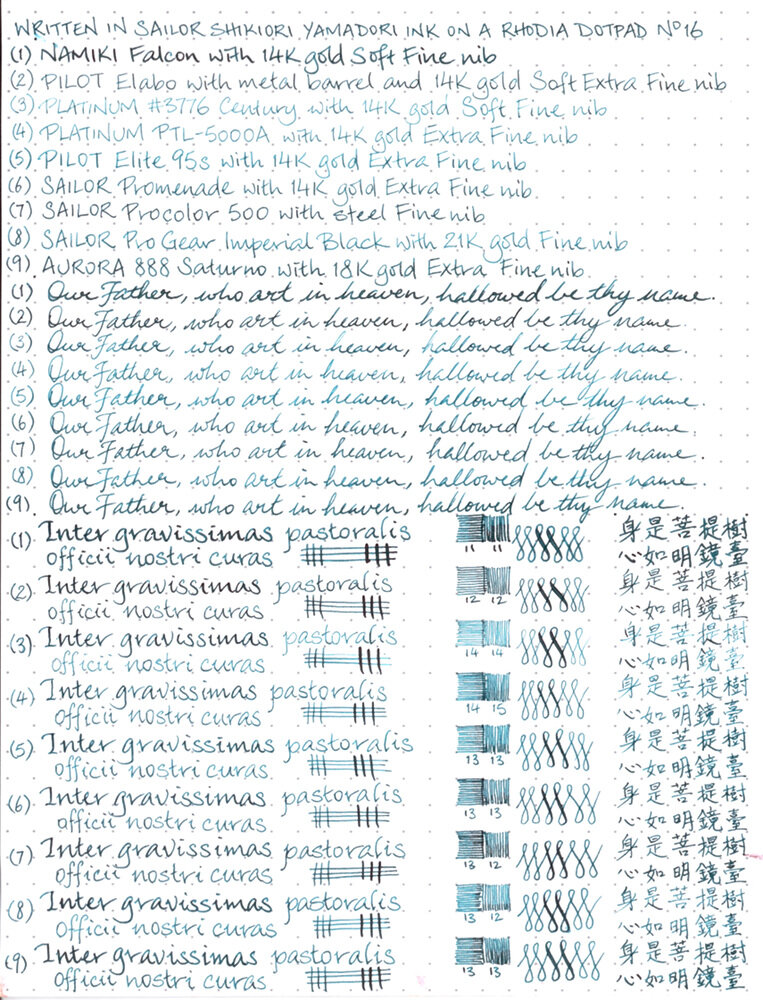 WRITTEN IN SAILOR SHIKIORI YAMADORI INK ON A RHODIA DOTPAD Nº16
(1) NAMIKI Falcon with 14K gold Soft Fine nib
(2) PILOT Elabo with metal barrel and 14K gold Soft Extra Fine nib
(3) PLATINUM #3776 Century with 14K gold Soft Fine nib
(4) PLATINUM PTL-5000A with 14K gold Extra Fine nib
(5) PILOT Elite 95s with 14K gold Extra Fine nib
(6) SAILOR Promenade with 14K gold Extra Fine nib
(7) SAILOR Procolor 500 with steel Fine nib
(8) SAILOR Pro Gear Imperial Black with 21K gold Fine nib
(9) AURORA 888 Saturno with 18K gold Extra Fine nib
(1) Our Father, who art in heaven, hallowed be thy name.
(2) Our Father, who art in heaven, hallowed be thy name.
(3) Our Father, who art in heaven, hallowed be thy name.
(4) Our Father, who art in heaven, hallowed be thy name.
(5) Our Father, who art in heaven, hallowed be thy name.
(6) Our Father, who art in heaven, hallowed be thy name.
(7) Our Father, who art in heaven, hallowed be thy name.
(8) Our Father, who art in heaven, hallowed be thy name.
(9) Our Father, who art in heaven, hallowed be thy name.
(1) Inter gravissimas pastoralis 身是菩提樹
officii nostri curas 11 11 心如明鏡臺
(2) Inter gravissimas pastoralis 身是菩提樹
officii nostri curas 12 12 心如明鏡臺
(3) Inter gravissimas pastoralis 身是菩提樹
officii nostri curas 14 14 心如明鏡臺
(4) Inter gravissimas pastoralis 身是菩提樹
officii nostri curas 14 15 心如明鏡臺
(5) Inter gravissimas pastoralis 身是菩提樹
officii nostri curas 13 13 心如明鏡臺
(6) Inter gravissimas pastoralis 身是菩提樹
officii nostri curas 13 13 心如明鏡臺
(7) Inter gravissimas pastoralis 身是菩提樹
officii nostri curas 13 12 心如明鏡臺
(8) Inter gravissimas pastoralis 身是菩提樹
officii nostri curas 13 12 心如明鏡臺
(9) Inter gravissimas pastoralis 身是菩提樹
officii nostri curas 13 13 心如明鏡臺